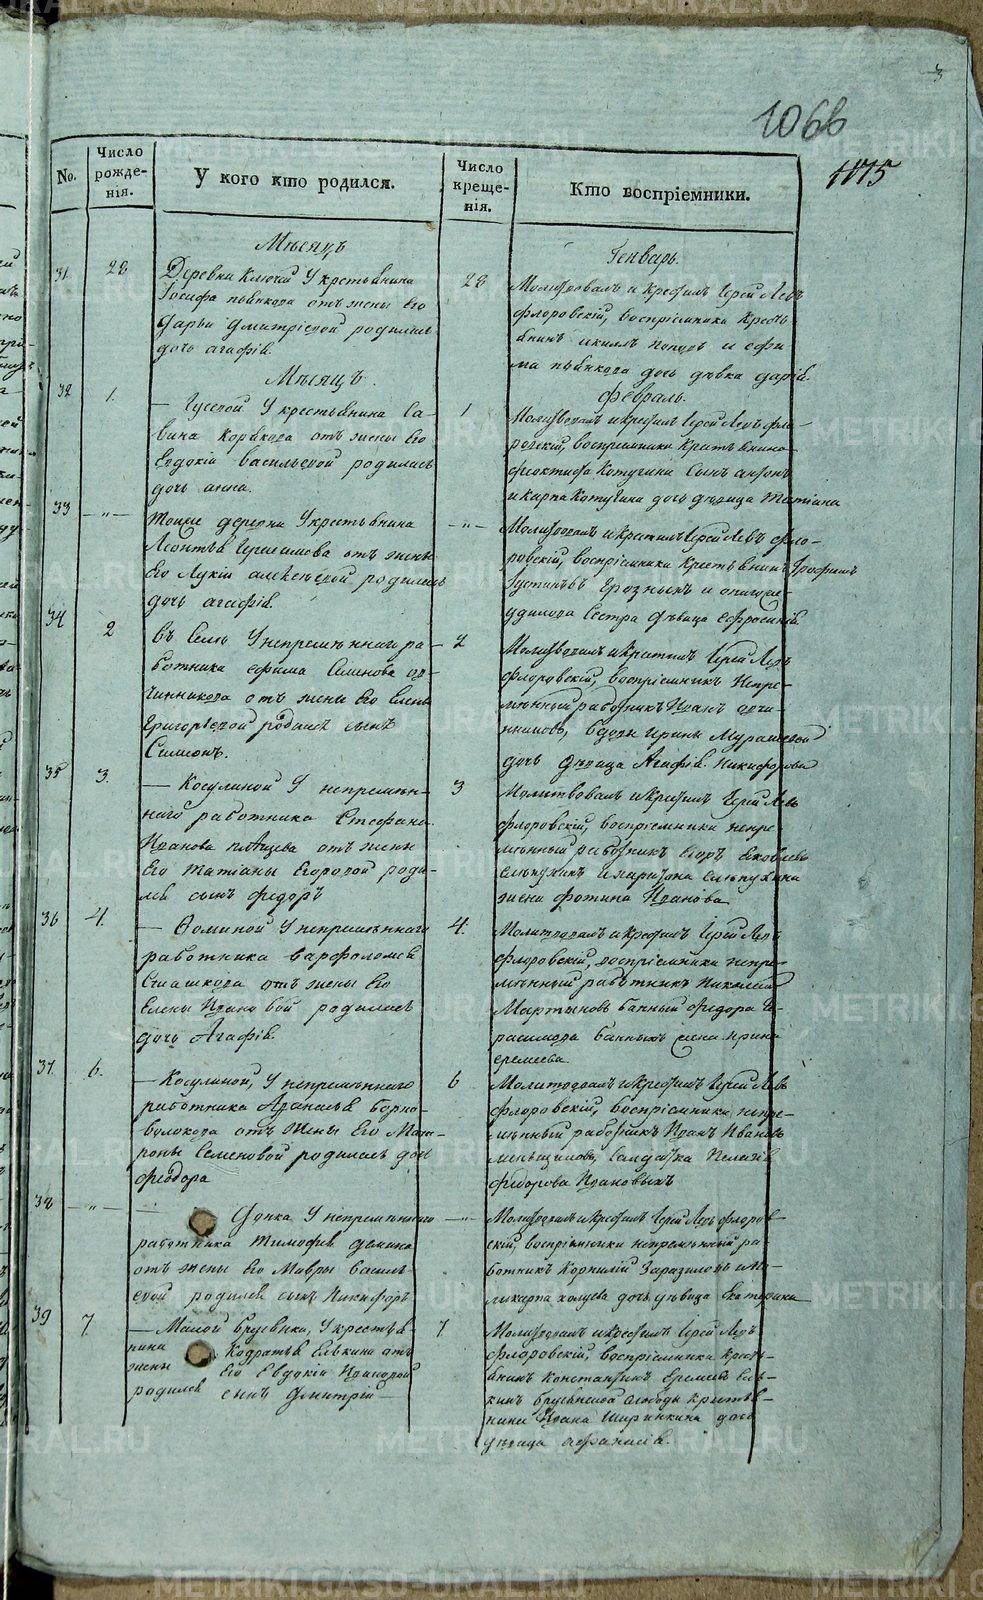 1066
1175
No.
Число рожде-
нія.
У кого кто родился.
Число креще-
нія.
Кто воспріемники.
Мѣсяцъ
Генварь.
31.
28
Деревни Ключей У крестьянина
Іосифа пьянкова отъ жены Его
Дарьи Дмитріевой родилась
дочь агафія.
28
Молитвовалъ и крестилъ Іерей Левъ
флоровскій, воспріемники кресть
янинъ
дочь дѣвка дарія.
Мѣсяцъ.
февраль.
32
1.
— Гусевой У крестьянина Са-
вина Корякова отъ жены Его
Евдокіи васильевой родилась
дочь анна.
1
Молитвовалъ и крестилъ Іерей Левъ фло-
ровскій, воспріемники Крестьянина
феоктиста Котугина Сынъ антонъ
и карпа Котугина дочь дѣвица Татіана
33
— " —
Тойже деревни У крестьянина
Леонтья Герасимова отъ жены
Его Лукіи алексѣевой родилась
дочь агафія.
— " —
Молитвовалъ и крестилъ Іерей Левъ фло-
ровскій, воспріемники Крестьянинъ Трофимъ
Сестра дѣвица Ефросинія
34
2
въ Селѣ У непремѣннаго ра-
ботника ефима Семенова ов-
чинникова отъ жены Его Елены
Григорьевой родился сынъ
Симеонъ.
2
Молитвовалъ и крестилъ Іерей Левъ
флоровскій, воспріемникъ Непре-
мѣнный работникъ Иванъ овчи-
нниковъ, вдовы ирины Мурашевой
дочь дѣвица Агафія Никифорова
35
3.
— Косулиной У непремѣн-
наго работника Стефана
Иванова плѣшева отъ жены
Его Татіаны Егоровой роди-
лся сынъ федоръ
3
Молитвовалъ и крестилъ Іерей Левъ
флоровскій, воспріемники непре-
мѣнный работникъ Егоръ Яковлевъ
слѣпухинъ и харитона слѣпухина
жена фотина Иванова
36
4.
— Фоминой У непремѣннаго
работника варфоломея
Сташкова отъ жены Его
Елены Ивановой родилась
дочь Агафія.
4.
Молитвовалъ и крестилъ Іерей Левъ
флоровскій, воспріемники непре-
мѣнный работникъ Николай
Мартыновъ банный федора Ге-
расимова банныхъ жена ирина
еремеева
37.
6.
— Косулиной, У непремѣннаго
работника Афанасья Борно-
волокова отъ жены Его Мат-
роны Семеновой родилась дочь
феодора
6
Молитвовалъ и крестилъ Іерей Левъ
флоровскій, воспріемники непре-
мѣнный работникъ Иванъ Ивановъ
меньщиковъ, Салдатка Пелагія
федорова Ивановыхъ
38
— " —
У непремѣннаго
работника Тимофея демина
отъ жены Его Мавры василь-
евой родился сынъ Никифоръ
— " —
Молитвовалъ и крестилъ Іерей Левъ флоров-
скій, воспріемники непремѣнный ра-
ботникъ Корнилій Заразиловъ и По-
ликарпа холуева дочь дѣвица Екатерина
39
7.
— Малой Брусянки, У крестья-
нина Кодратья Елькина отъ
жены Его Евдокіи Ивановой
родился сынъ Дмитрій —
7
Молитвовалъ и крестилъ Іерей Левъ
флоровскій, воспріемники кресть-
янинъ Константинъ Еремеевъ Ель-
кинъ Брусянской слободы Крестья-
нина Ивана Ширинкина дочь
дѣвица афанасія.